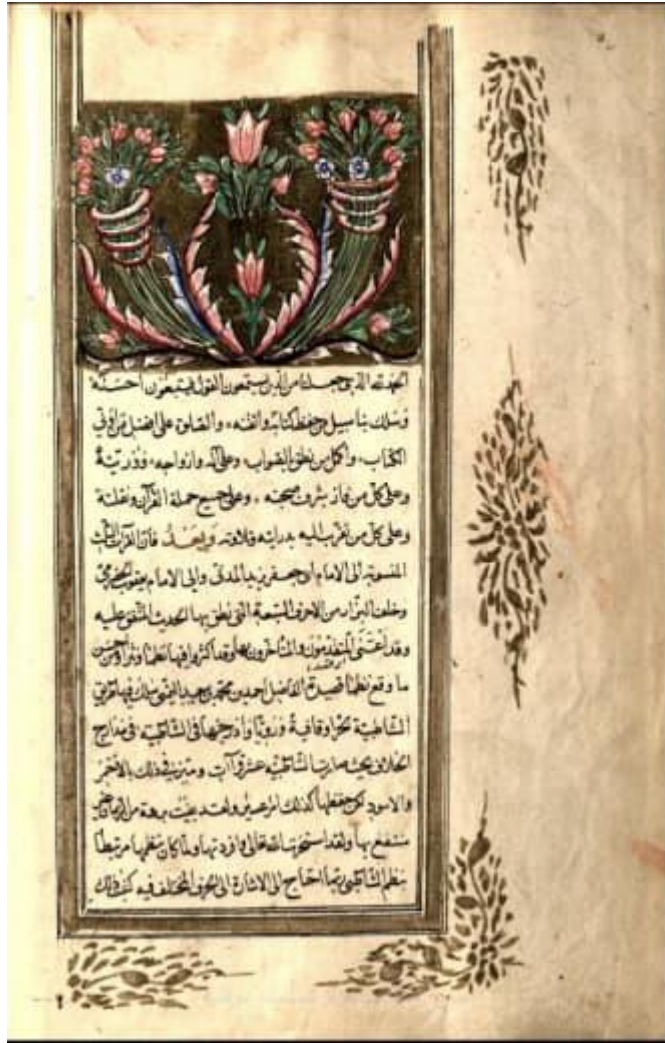 الحمد لله الذي جعلنا من الذين يستمعون القول فيتبعون احسنه
وسلك بنا سبيل حفظ كتابه واتقنه والصلوة على افضل من اوتي
الكتاب وأكمل من نطق بالصواب وعلى آله وازواجه وذريته
وعلى كل من فاز بشرف صحبته وعلى جميع حملة القرآن ونقلته
وعلى كل من تقرب اليه بدرايته وتلاوته وبعد فان القرآات الثلث
المنسوبة الى الامام ابى جعفر يزيد المدنى والى الامام يعقوب الحضرمى
وخلف البزار من الاحرف السبعة التى نطق بها الحديث المتفق عليه
وقد اعتنى المتقدمون والمتأخرون بها وقد اكثروا فيها نظما ونثرا ومن احسن
ما وقع نظما قصيدة الفاضل احمد بن محمد بن سعيد اليمنى سلك فيها طريق
الشاطبية بحرا وقافية ورويا وادرجها فى الشاطبية فى مدارج
الخلائق بحيث صارت الشاطبية عشر قرآات وميز فى ذلك بالاحمر
والاسود لكن حفظها كذلك امر عسير ولقد بقيت برهة من الزمان غير
منتفع بها ولقد استخرت الله تعالى وافردتها ولما كان نظمها مرتبطا
بنظم الشاطبى ربما احتاج الى الاشارة الى الحرف المختلف فيه كيف ذلك